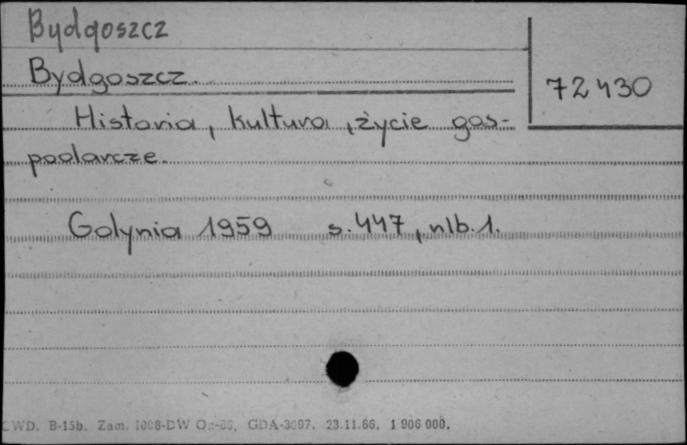 Bydgoszcz
Bydgoszcz.
72430
Historia, kultura, życie gos-
podarcze.
Gdynia 1959 s. 447, nlb. 1.
CWD. B-15b. Zam. 1008-DW GDA-3897. 23.11.66. 1 906 000.